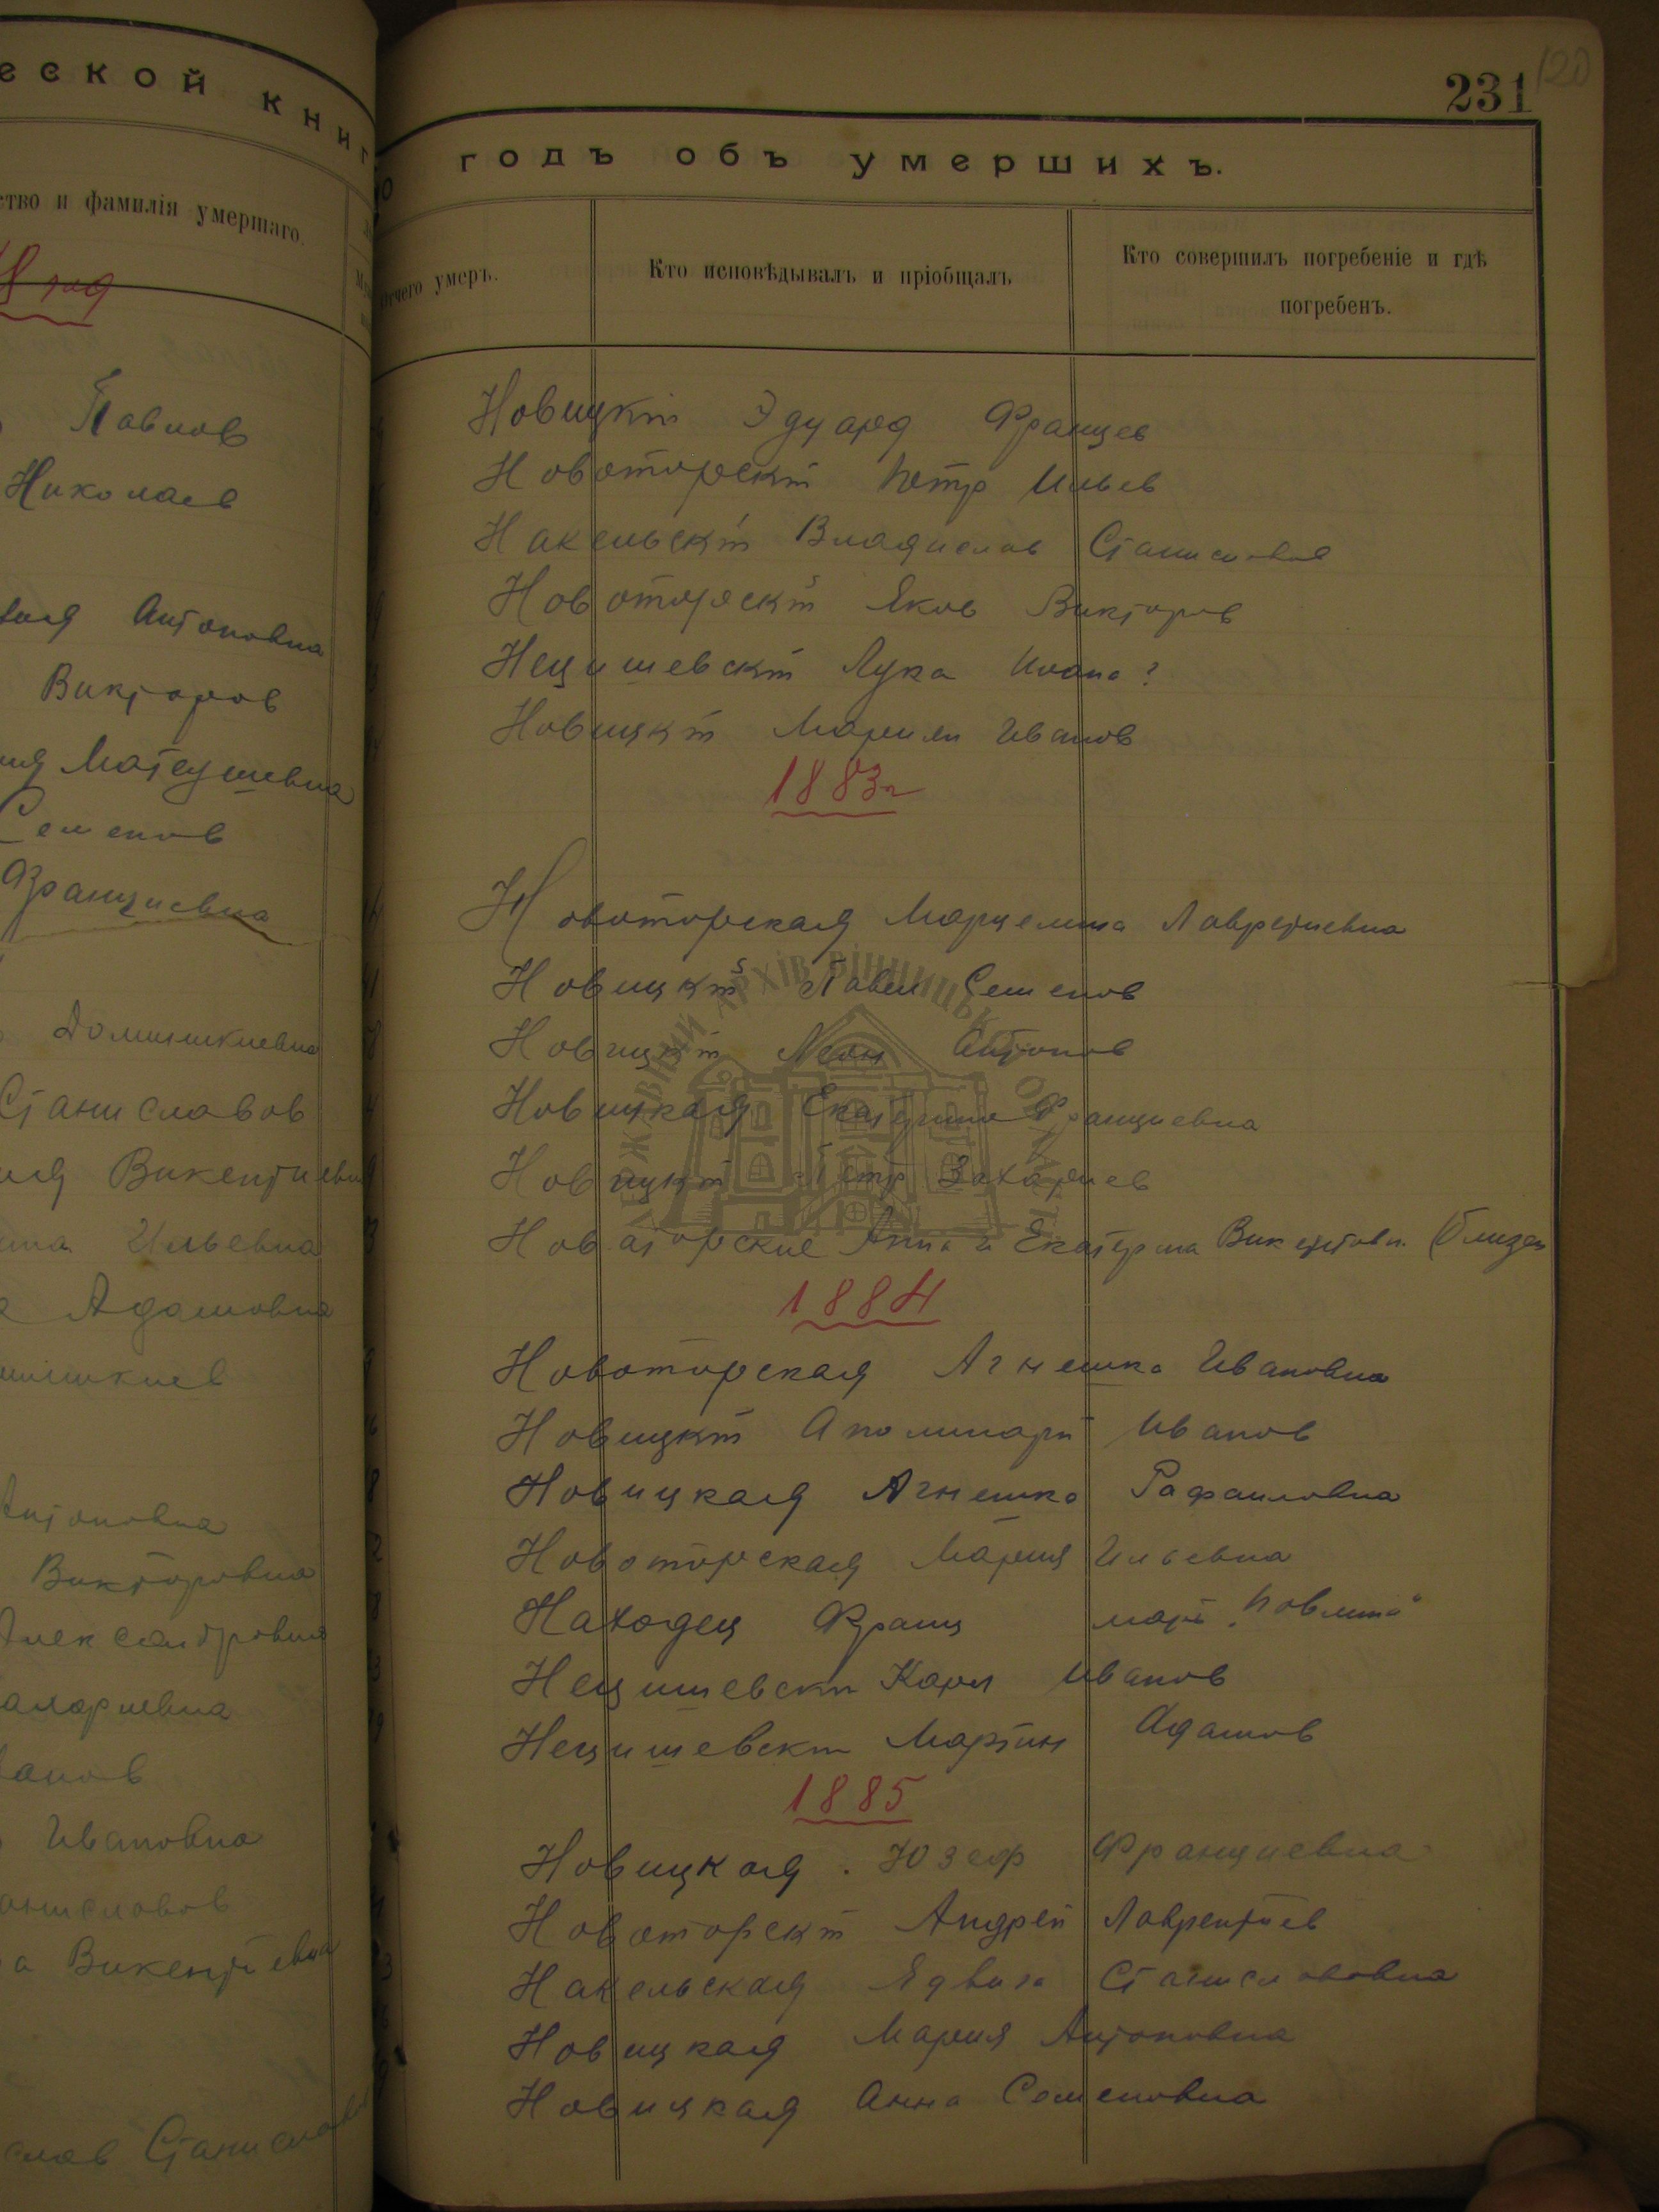 еской книг
ство и фамилія умершаго.
8 год
Павлов
Николаев
Антоновна
Викторов
Матеушевна
Семенов
Францисевна
Доминикиевна
Станиславов
Викентиевна
Ильевна
Адамовна
Антоновна
Викторовна
Александровна
Ивановна
Викентіевна
Станиславов
231
120
годъ объ умершихъ.
отчего умеръ.
Кто исповѣдывалъ и пріобщалъ
Кто совершилъ погребеніе и гдѣ
погребенъ.
Новицкій Эдуард Францев
Новоторскій Петр Ильев
Накельскій Владислав Станиславов
Новоторскій Яков Викторов
Нецишевскій Лука Ивана?
Новицкій Иванов
1883г
Новоторская Марцелина Лаврентиевна
Новицкій Павел Семенов
Новицкій Леон Антонов
Новицкая Екатерина Францисевна
Новицкій Петр Захариев
Новаторские Анна и Екатерина Викентовн. (близн
1884
Новоторская Агнешка Ивановна
Новицкій Аполинарій Иванов
Новицкая Агнешка Рафаиловна
Новоторская Мария Ильевна
Находец Франц
Нецишевский Карл Иванов
Нецишевский Мартин Адамов
1885
Новицкая Юзеф Францисевна
Новоторскій Андрей Лаврентіев
Накельская Ядвига Станиславовна
Новицкая Мария Антоновна
Новицкая Анна Семеновна